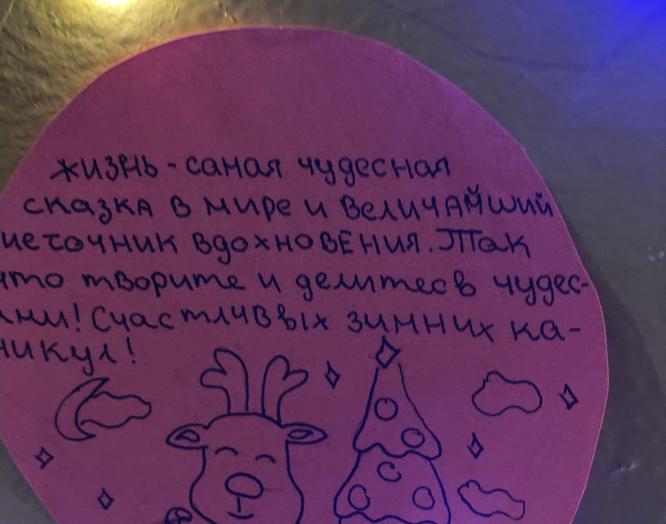 жизнь - самая чудесная
сказка в мире и величайший
источник вдохновения. Так
что творите и делитесь чудес-
ами! Счастливых зимних ка-
никул!